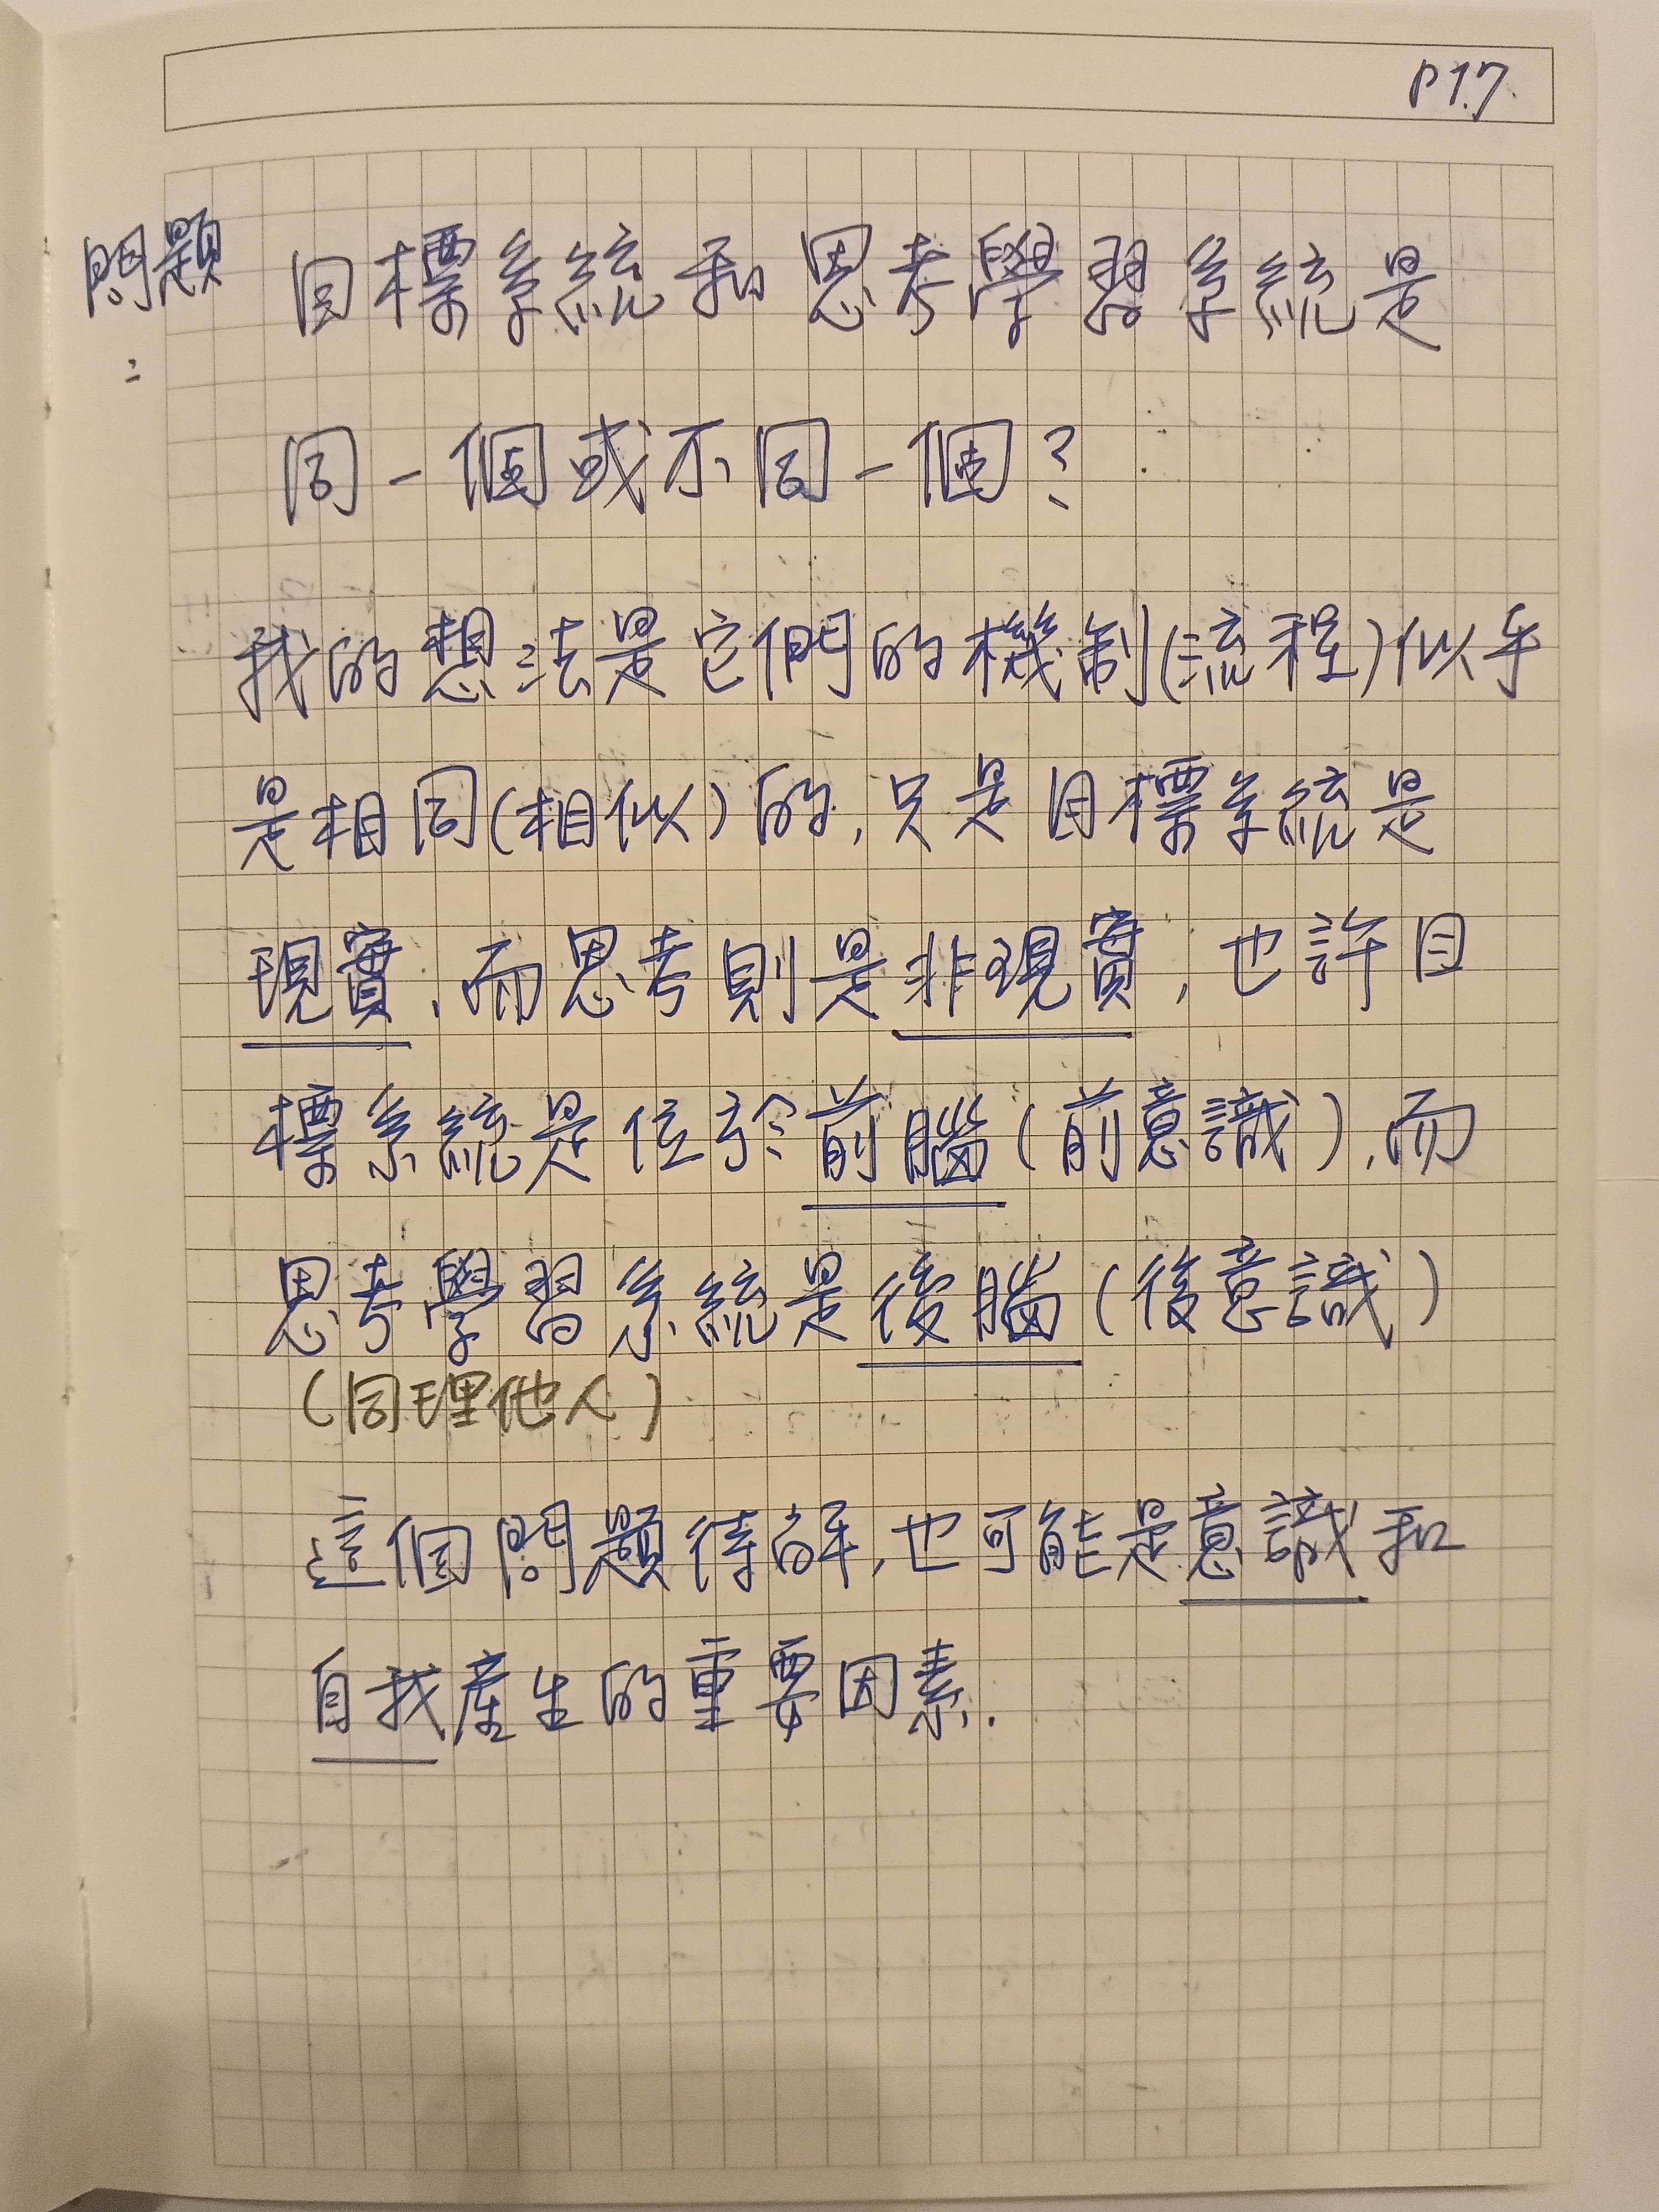 P17
問題: 目標系統和思考學習系統是
同一個或不同一個?
我的想法是它們的機制(流程)似乎
是相同(相似)的,只是目標系統是
現實,而思考則是非現實,也許目
標系統是位於前腦(前意識),而
思考學習系統是後腦(後意識)
(同理他人)
這個問題待解,也可能是意識和
自我產生的重要因素.